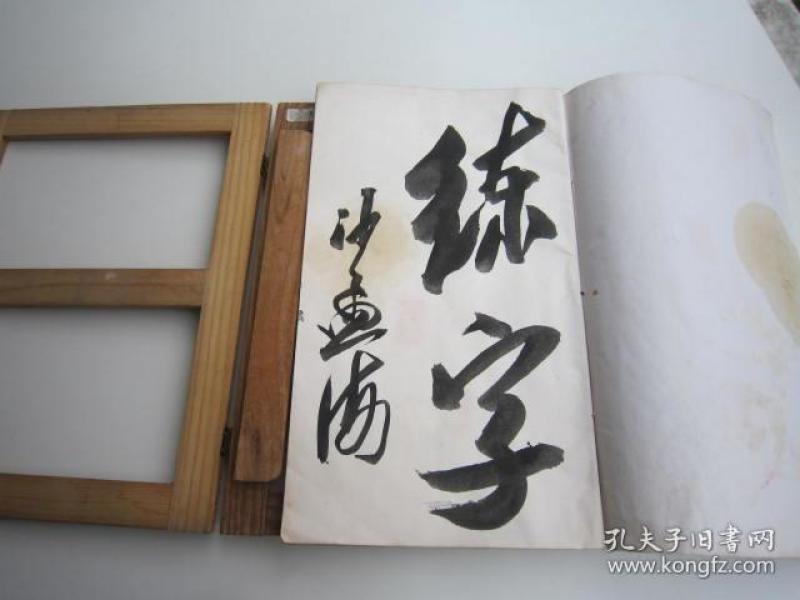 练字
沙孟海
孔夫子旧書网
www.kongfz.com